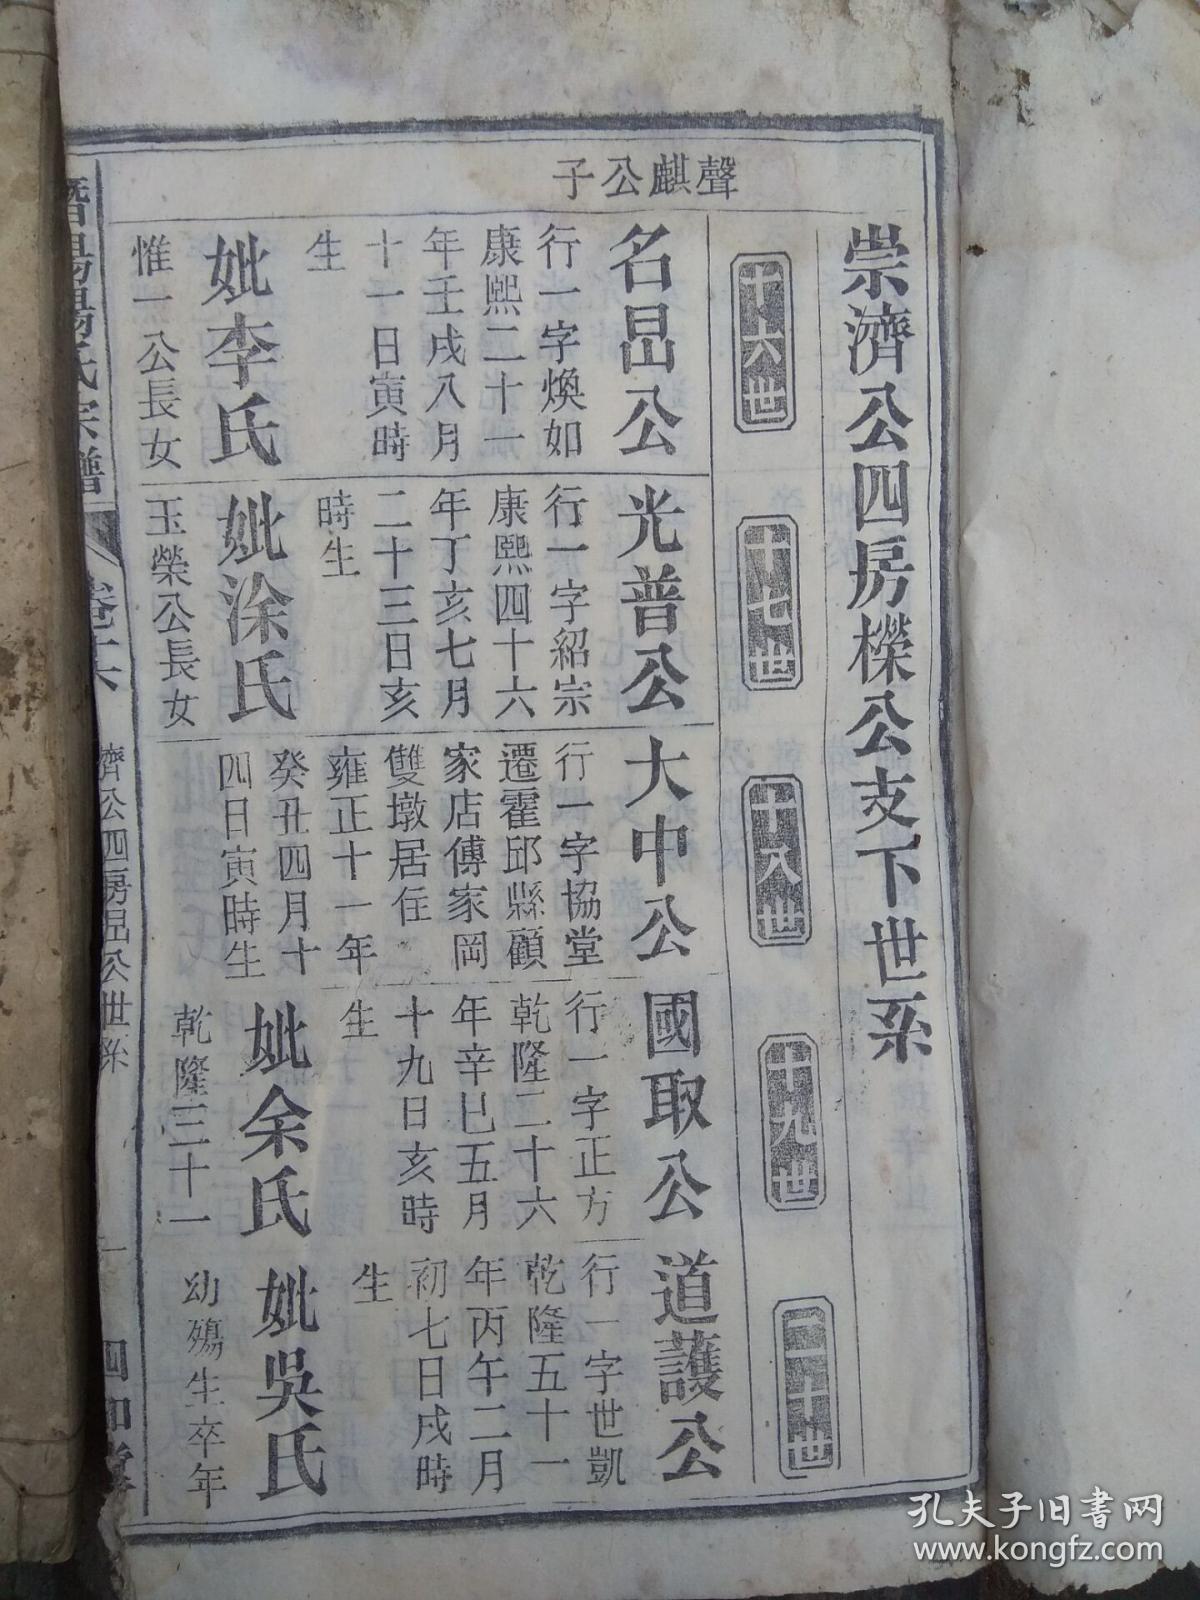 崇濟公四房櫟公支下世系
十六世
十七世
十八世
十九世
二十世
聲麒公子
名昷公
行一字煥如
康熙二十一
年壬戌八月
十一日寅時
生
妣李氏
惟一公長女
光普公
行一字紹宗
康熙四十六
年丁亥七月
二十三日亥
時生
妣涂氏
玉榮公長女
大中公
行一字協堂
遷霍邱縣顧
家店傅家岡
雙墩居住
雍正十一年
癸丑四月十
四日寅時生
國取公
行一字正方
乾隆二十六
年辛巳五月
十九日亥時
生
妣余氏
乾隆三十一
道護公
行一字世凱
乾隆五十一
年丙午二月
初七日戌時
生
妣吳氏
幼殤生卒年
氏宗譜
卷十六
濟公四房昷公世系
一
四知堂
孔夫子旧书网
www.kongfz.com